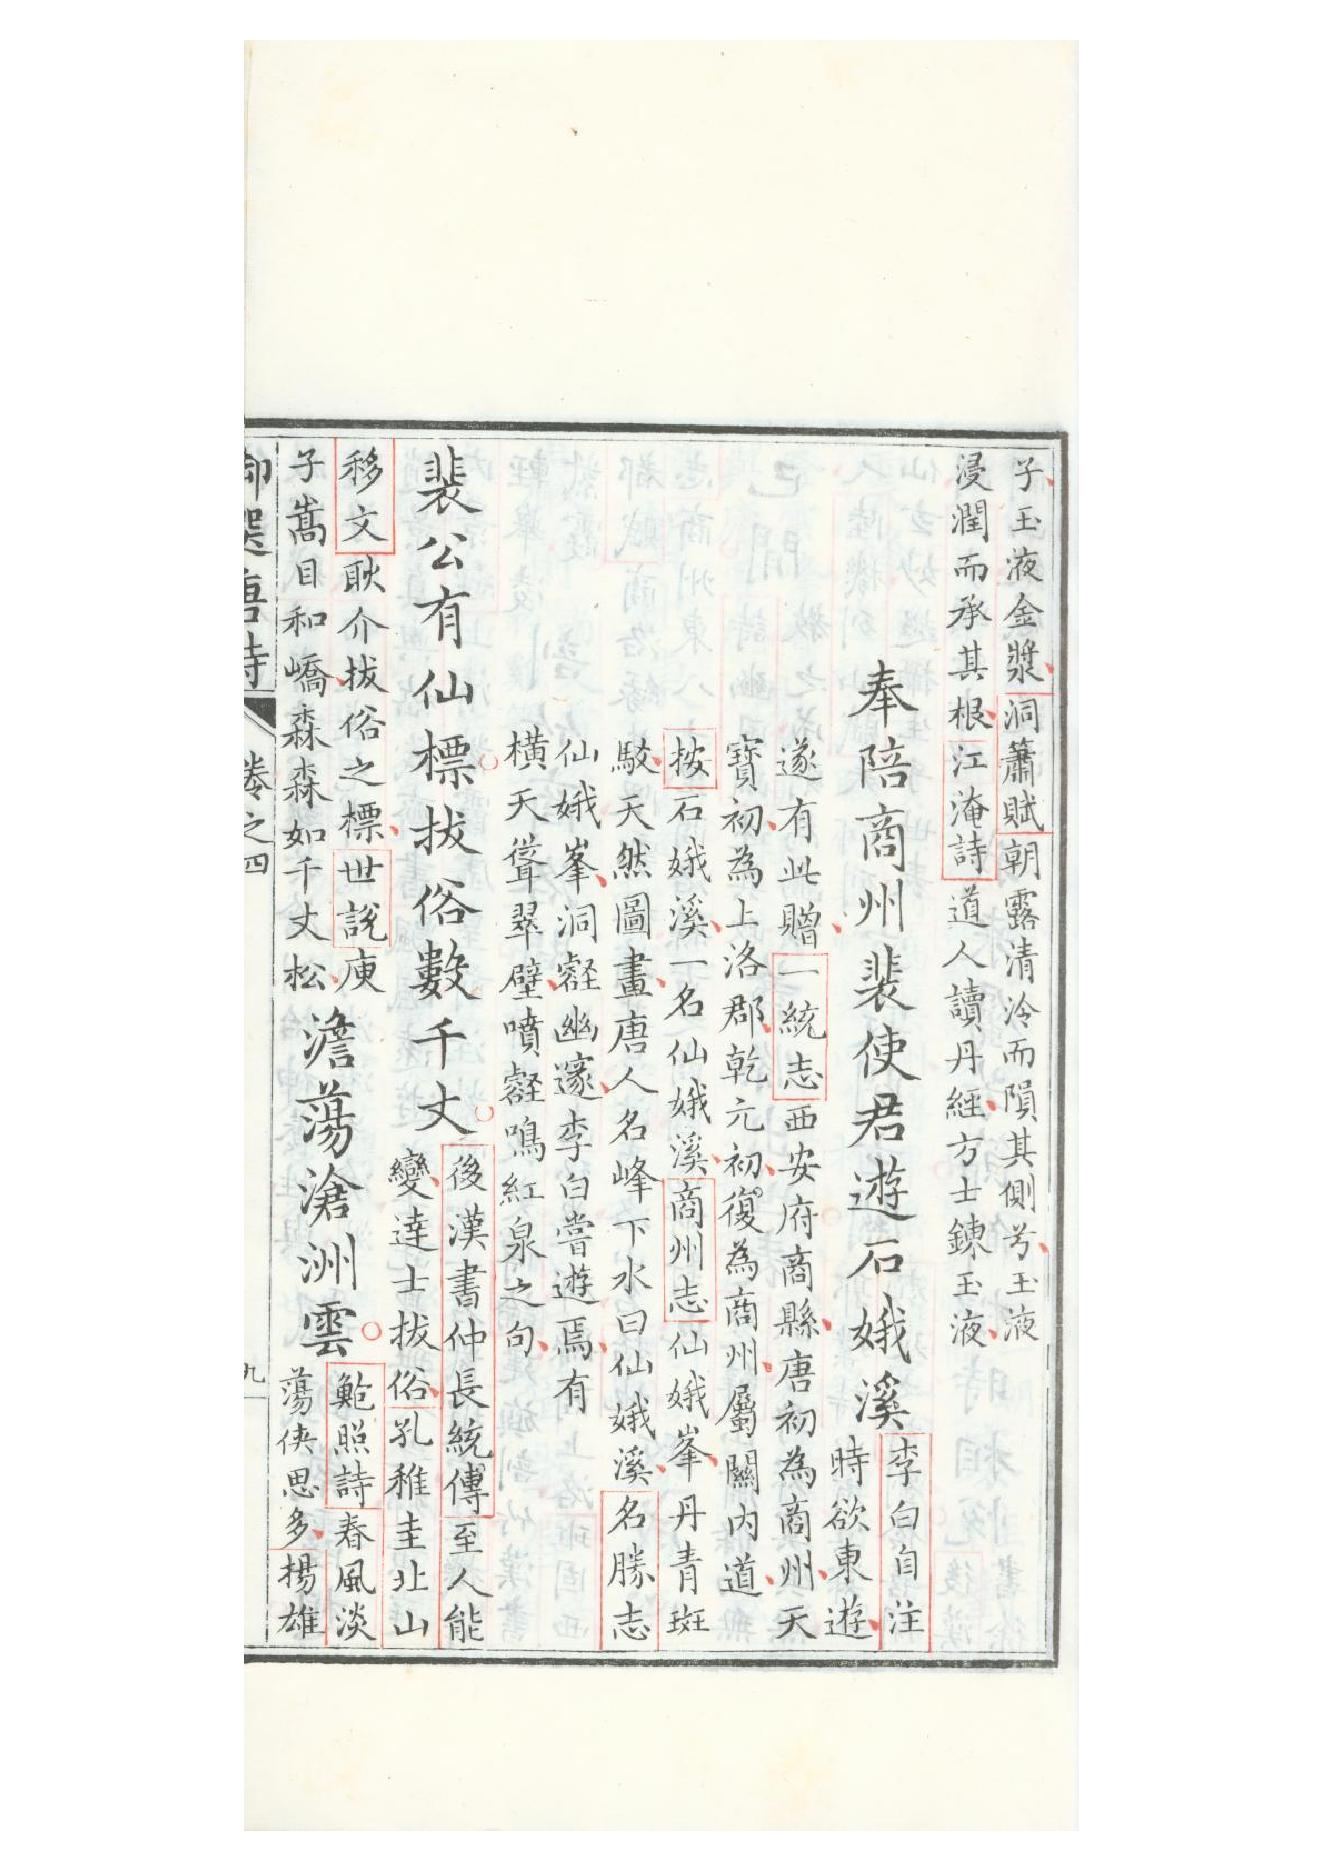 子玉液金漿洞簫賦朝露清泠而隕其側兮玉液
浸潤而承其根江淹詩道人讀丹經方士鍊玉液
奉陪商州裴使君遊石娥溪
李白自注
時欲東遊
遂有此贈一統志西安府商縣唐初為商州天
寶初為上洛郡乾元初復為商州屬關內道
按石娥溪一名仙娥溪商州志仙娥峯丹青斑
駁天然圖畫唐人名峰下水曰仙娥溪名勝志
仙娥峯洞谿幽邃李白嘗遊焉有
橫天聳翠壁噴壑鳴紅泉之句
裴公有仙標拔俗數千丈
後漢書仲長統傳至人能
變達士拔俗孔稚圭北山
移文耿介拔俗之標世說庾
子嵩目和嶠森森如千丈松
澹蕩滄洲雲
鮑照詩春風淡
蕩俠思多揚雄
御選唐詩 卷之四 九